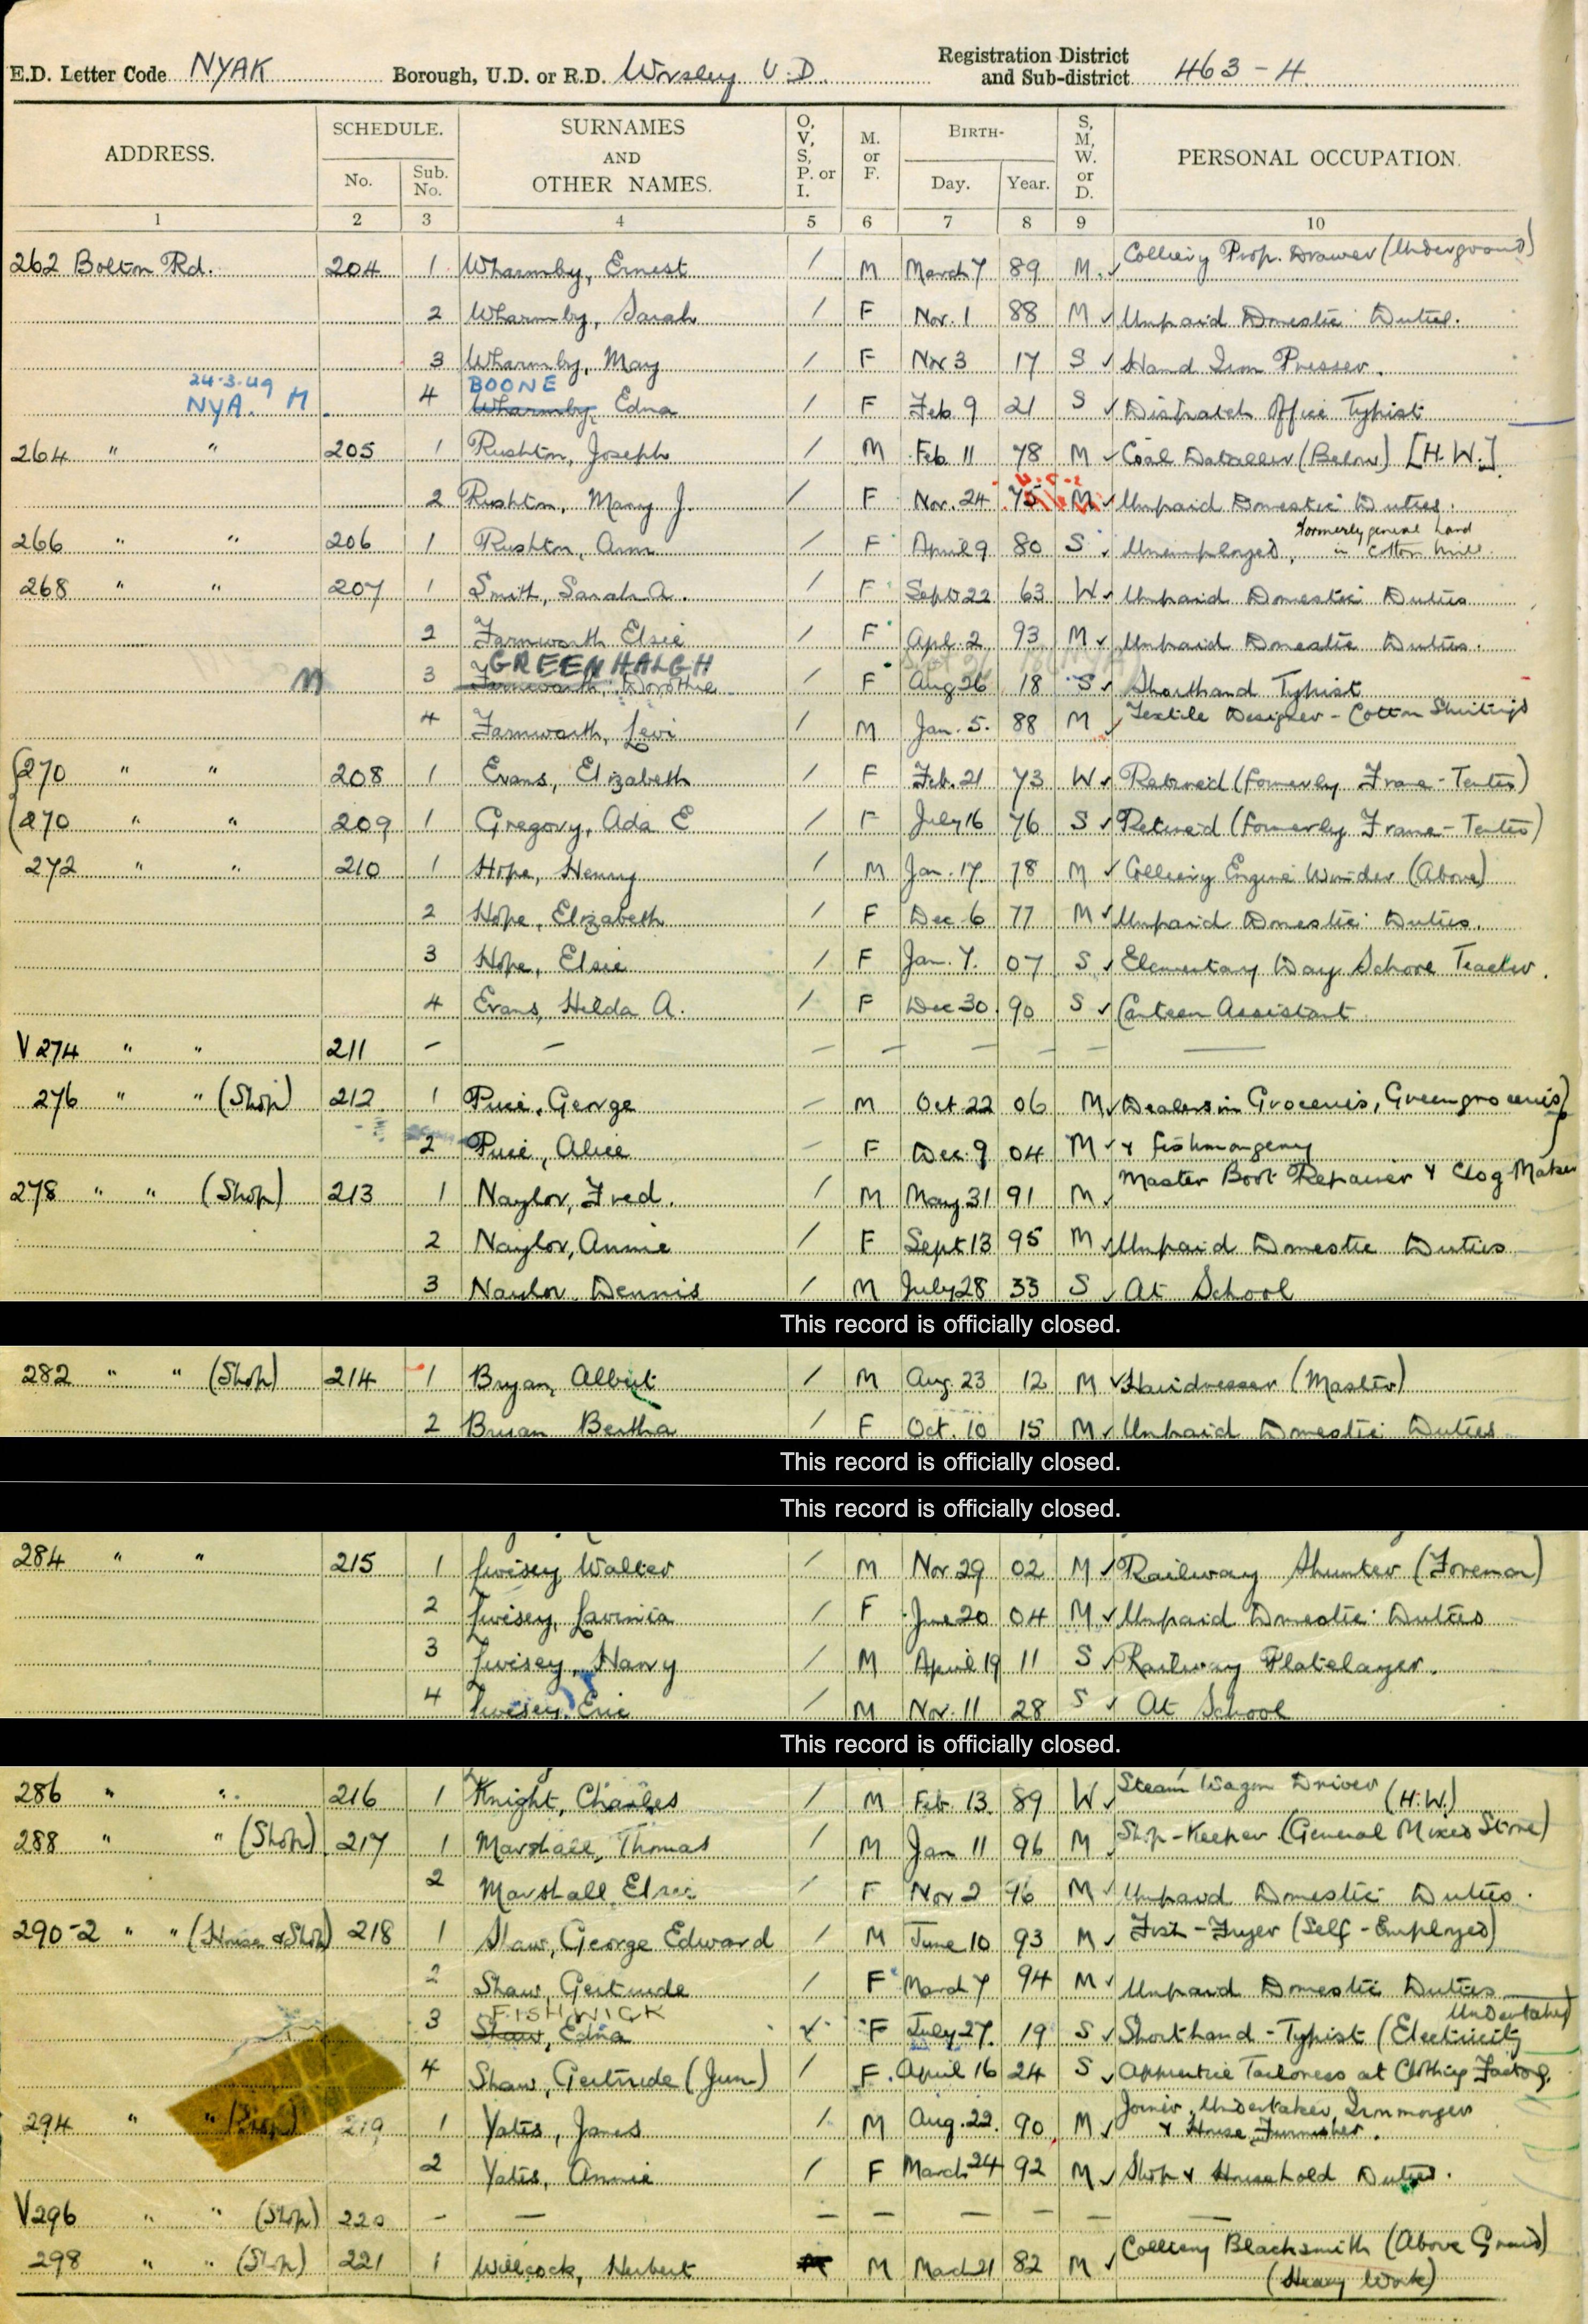 E.D. Letter Code NYAK Borough, U.D. or R.D. Worsley U.D. Registration District and Sub-district 463-4
ADDRESS. SCHEDULE. No. Sub. No. SURNAMES AND OTHER NAMES. O, V, S, P. or I. M. or F. BIRTH- Day. Year. S, M, W. or D. PERSONAL OCCUPATION.
1 2 3 4 5 6 7 8 9 10
262 Bolton Rd. 204 1 Wharmby, Ernest / M March 7 89 M Colliery Prop. Drawer (Underground)
2 Wharmby, Sarah / F Nov. 1 88 M Unpaid Domestic Duties.
3 Wharmby, May / F Nov 3 17 S Hand Iron Presser.
24.3.49 BOONE
NYA. M. 4 Wharmby, Edna / F Feb 9 21 S Dispatch Office Typist
264 " " 205 1 Rushton, Joseph / M Feb 11 78 M Coal Dataller (Below) [H.W.]
2 Rushton, Mary J. / F Nov. 24 75 M Unpaid Domestic Duties.
266 " " 206 1 Rushton, Ann / F April 9 80 S Unemployed, formerly general hand in Cotton Mill
268 " " 207 1 Smith, Sarah A. / F Sept 22 63 W Unpaid Domestic Duties
2 Farnworth Elsie / F Apl. 2 93 M Unpaid Domestic Duties.
GREENHALGH
M 3 Farnworth, Dorothie / F Aug 26 18 S Shorthand Typist
4 Farnworth, Levi / M Jan. 5. 88 M Textile Designer - Cotton Shirtings
270 " " 208 1 Evans, Elizabeth / F Feb. 21 73 W Retired (formerly Frame-Tenter)
270 " " 209 1 Gregory, Ada E / F July 16 76 S Retired (formerly Frame-Tenter)
272 " " 210 1 Hope, Henry / M Jan. 17. 78 M Colliery Engine Winder (Above)
2 Hope, Elizabeth / F Dec. 6 77 M Unpaid Domestic Duties.
3 Hope, Elsie / F Jan. 7. 07 S Elementary Day School Teacher.
4 Evans, Hilda A. / F Dec 30. 90 S Canteen Assistant
V 274 " " 211 - - - - - - - -
276 " " (Shop) 212 1 Price, George - M Oct 22 06 M Dealers in Groceries, Greengroceries
2 Price, Alice - F Dec. 9 04 M & fishmongery
278 " " (Shop) 213 1 Naylor, Fred. / M May 31 91 M Master Boot Repairer & Clog Maker
2 Naylor, Annie / F Sept 13 95 M Unpaid Domestic Duties
3 Naylor Dennis / M July 28 33 S At School
This record is officially closed.
282 " " (Shop) 214 1 Bryan, Albert / M Aug. 23 12 M Hairdresser (Master)
2 Bryan Bertha / F Oct. 10 15 M Unpaid Domestic Duties
This record is officially closed.
This record is officially closed.
284 " " 215 1 Livisey Walter / M Nov 29 02 M Railway Shunter (Foreman)
2 Livisey, Lavinia / F June 20 04 M Unpaid Domestic Duties
3 Livisey, Harry / M April 19 11 S Railway Platelayer.
4 Livisey, Eric / M Nov. 11 28 S At School
This record is officially closed.
286 " " 216 1 Knight, Charles / M Feb. 13 89 W Steam Wagon Driver (H.W.)
288 " " (Shop) 217 1 Marshall, Thomas / M Jan 11 96 M Shop-Keeper (General Mixed Store)
2 Marshall Elsie / F Nov 2 96 M Unpaid Domestic Duties.
290-2 " " (House & Shop) 218 1 Shaw, George Edward / M June 10 93 M Fish-Fryer (Self-Employed)
2 Shaw, Gertrude / F March 7 94 M Unpaid Domestic Duties
FISHWICK
3 Shaw, Edna F July 27. 19 S Shorthand-Typist (Electricity Undertaking)
4 Shaw, Gertrude (Jun.) / F. April 16 24 S Apprentice Tailoress at Clothing Factory.
294 " " (Shop) 219 1 Yates, James / M Aug. 22. 90 M Joiner, Undertaker, Ironmonger & House Furnisher.
2 Yates, Annie / F March 24 92 M Shop & Household Duties.
V 296 " " (Shop) 220 - - - - - - -
298 " " (Shop) 221 1 Willcock, Herbert M March 21 82 M Colliery Blacksmith (Above Ground) (Heavy Work)